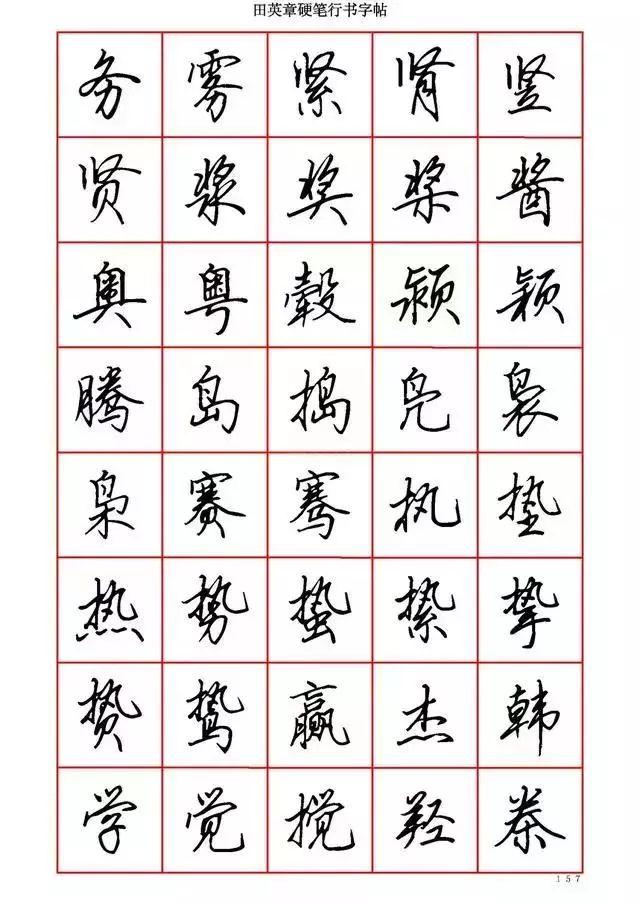 田英章硬笔行书字帖
务雾紧肾竖
贤浆奖桨酱
奥粤毂颍颖
腾岛捣凫袅
枭赛骞执垫
热势蛰絷挚
贽鸷赢杰韩
学觉搅羟眷
157